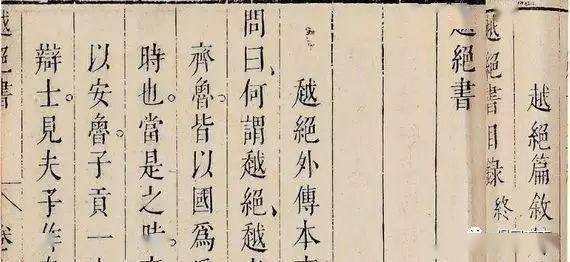 越絕篇敘
越絕書目錄 終
越絕書
越絕外傳本
問曰、何謂越絕、越
齊魯。皆以國爲
時也。當是之時。
以安魯。子貢一
辯士。見夫子作
越絕書 卷